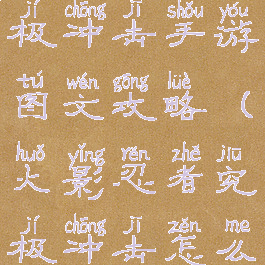 jí chōng jī shǒu yóu
极冲击手游
tú wén gōng lüè
图文攻略(
huǒ yǐng rěn zhě jiū
火影忍者究
jí chōng jī zěn me
极冲击怎么